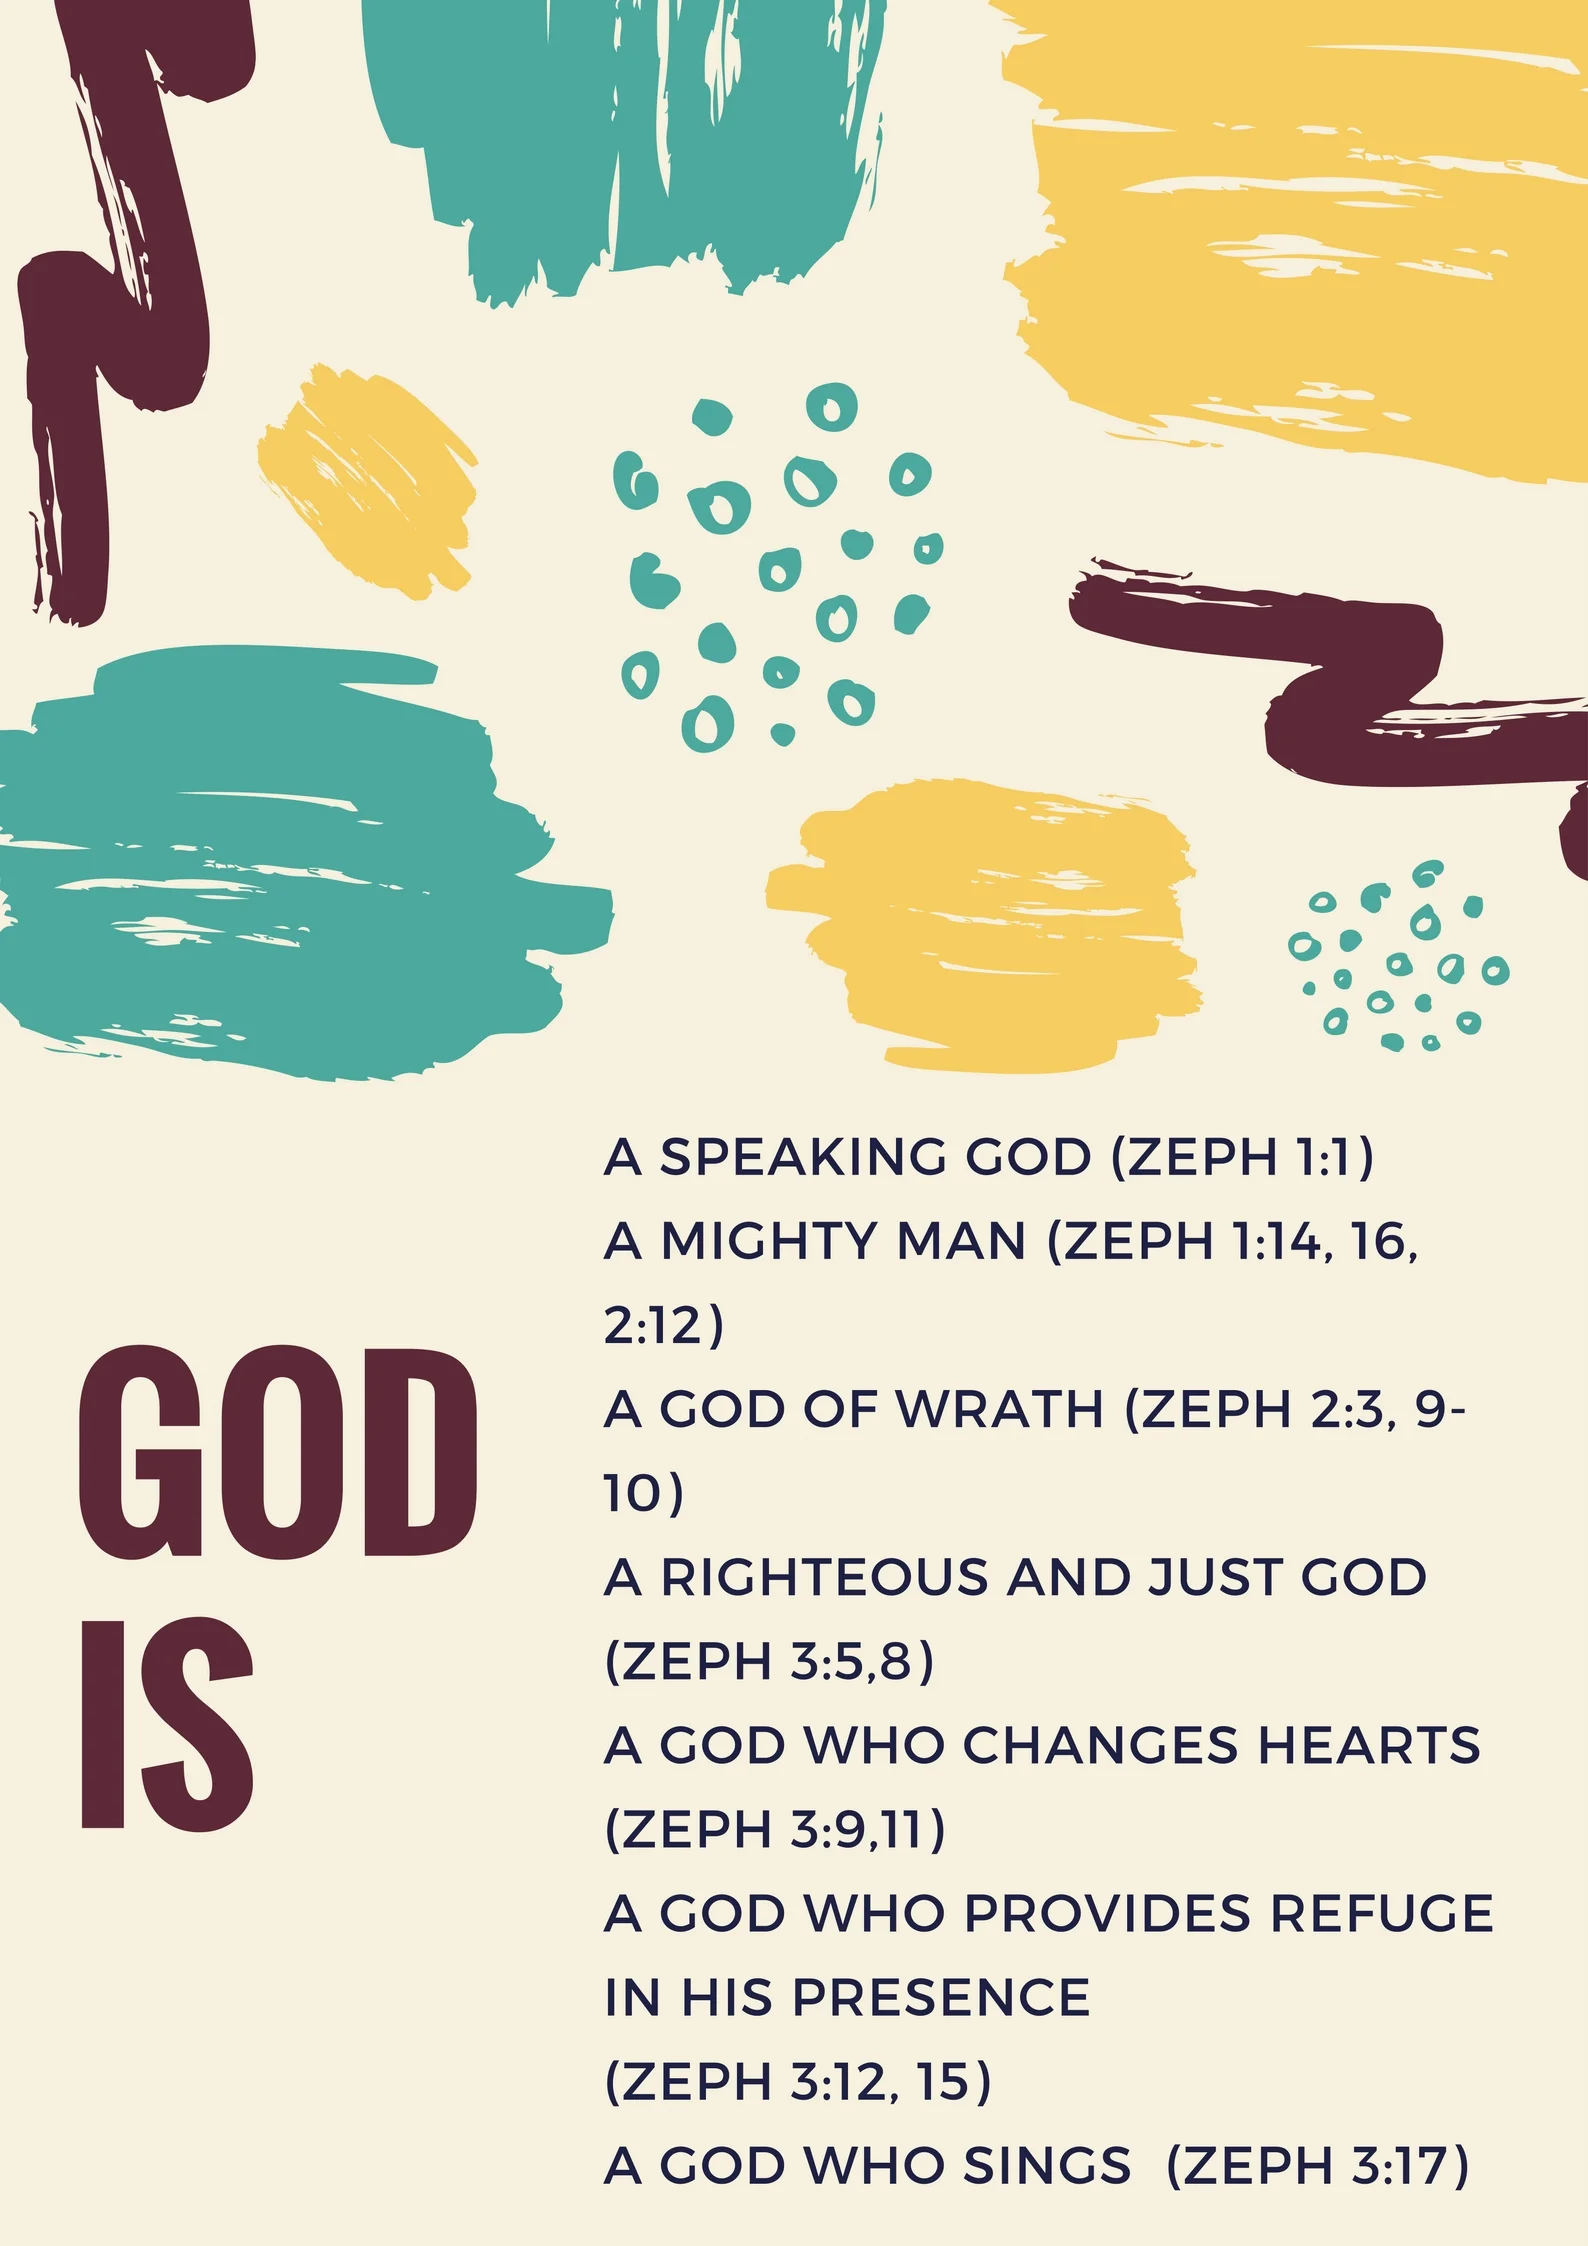 GOD
IS
A SPEAKING GOD (ZEPH 1:1)
A MIGHTY MAN (ZEPH 1:14, 16,
2:12)
A GOD OF WRATH (ZEPH 2:3, 9-
10)
A RIGHTEOUS AND JUST GOD
(ZEPH 3:5,8)
A GOD WHO CHANGES HEARTS
(ZEPH 3:9,11)
A GOD WHO PROVIDES REFUGE
IN HIS PRESENCE
(ZEPH 3:12, 15)
A GOD WHO SINGS  (ZEPH 3:17)